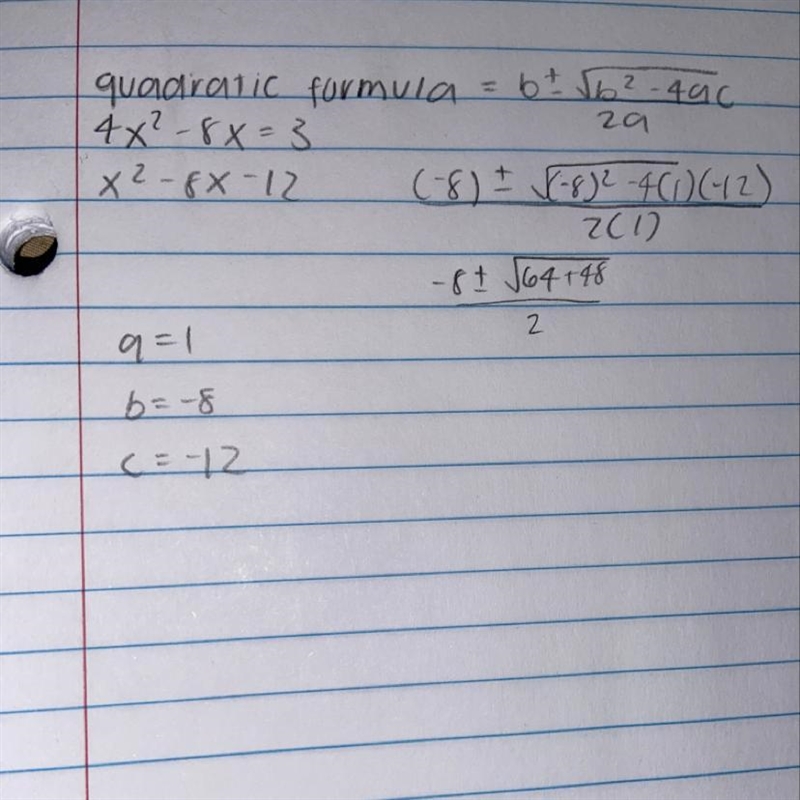 quadratic formula = b ± √b² - 4ac
2a
4x² - 8x = 3
x² - 8x - 12
(-8) ± √(-8)² - 4(1)(-12)
2(1)
-8 ± √64+48
2
a = 1
b = -8
c = -12